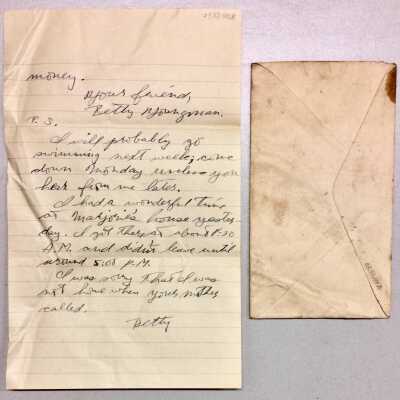 money.
Your friend,
Betty Youngman.
P. S.
I will probably go
swimming next week; come
down Monday unless you
hear from me later.
I had a wonderful time
at Marjorie's house yester-
day. I got there at about
A.M. and didn't leave until
around 5:00 P.M.
I was sorry that I was
not home when your mother
called.
Betty